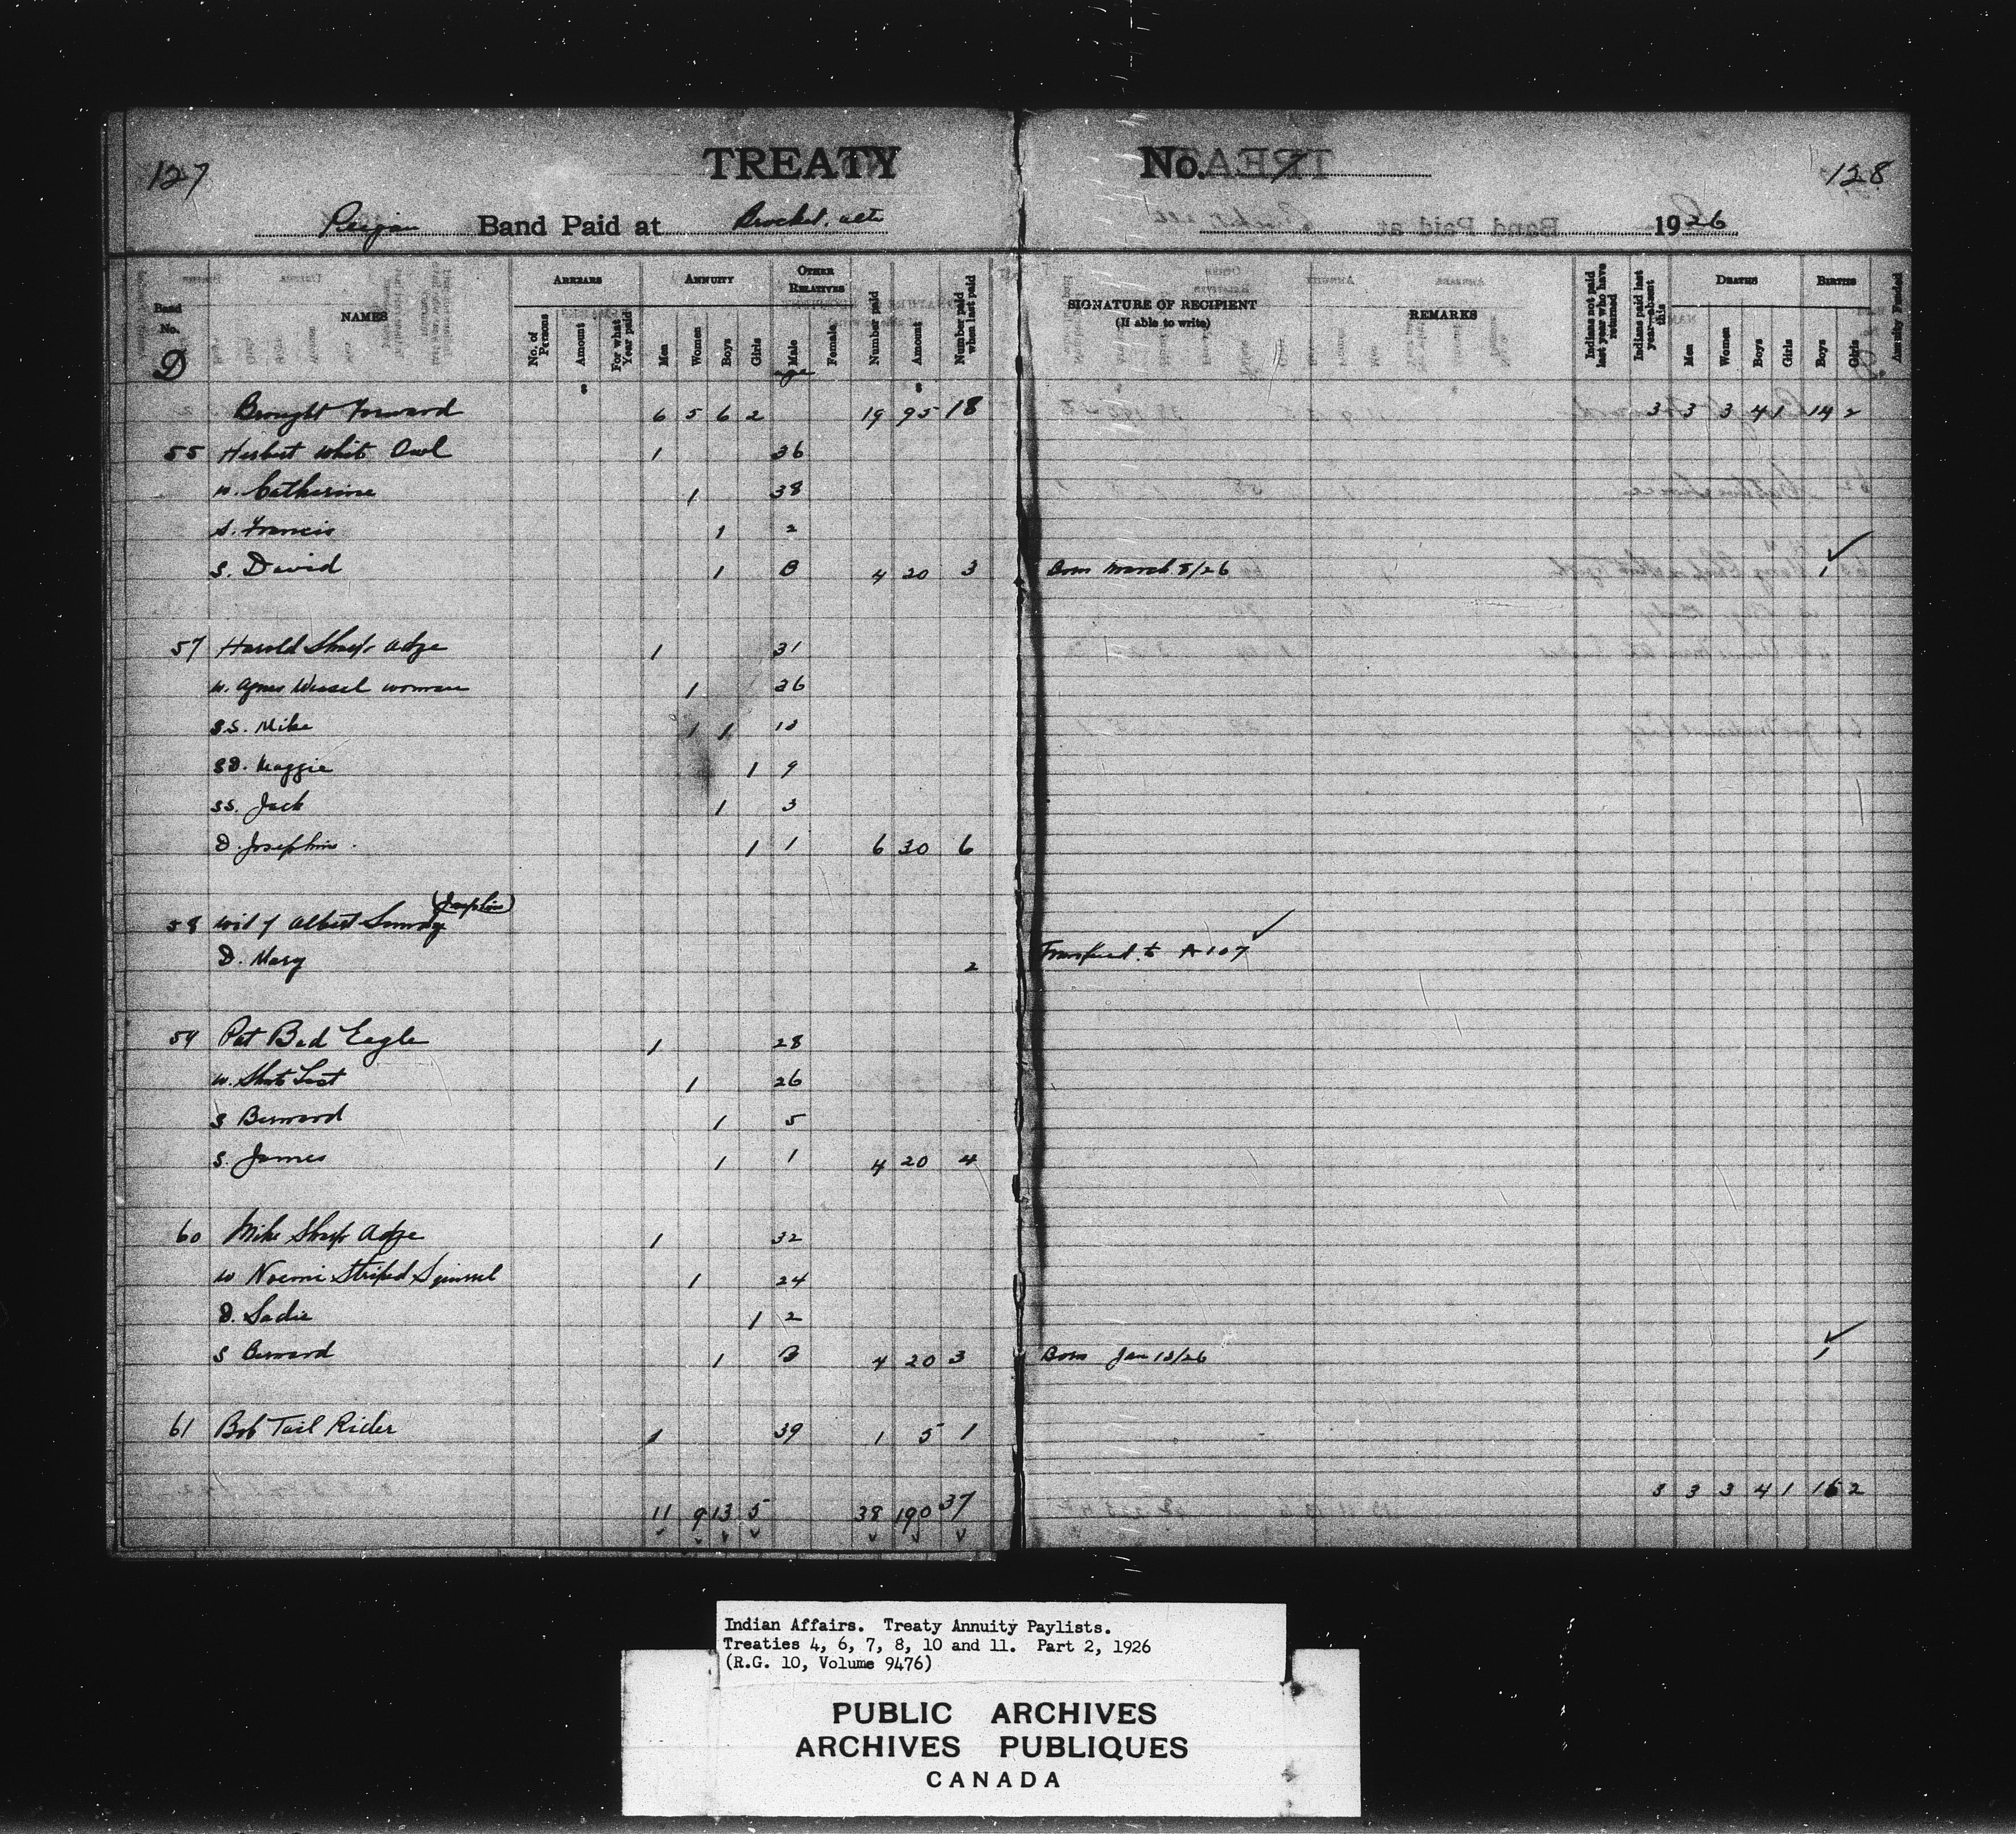 127 TREATY No. 7 128
Peigan Band Paid at Brocket, alta 1926
Band No. D
NAMES
ARREARS
No. of Persons
Amount
For what Year paid
ANNUITY
Men
Women
Boys
Girls
OTHER RELATIVES
Male
age
Female
Number paid
Amount
Number paid when last paid
SIGNATURE OF RECIPIENT
(If able to write)
REMARKS
Indians not paid last year who have returned
Indians paid last year—absent this
DEATHS
Men
Women
Boys
Girls
BIRTHS
Boys
Girls
Annuity Funded
$ $
Brought Forward 6 5 6 2 19 95 18 3 3 3 4 1 14 2
55 Herbert White Owl 1 36
w. Catherine 1 38
s. Francis 1 2
S. David 1 B 4 20 3 Born March 8/26 1
57 Harold Sharp Adze 1 31
w. Agnes Weasel woman 1 26
S.S. Mike 1 1 12
SD. Maggie 1 9
SS. Jack 1 3
D. Josephine 1 1 6 30 6
(Josephine)
58 Wid of Albert Sunday
D. Mary 2 Transferred to A 107
59 Pat Bad Eagle 1 28
w. Shot Last 1 26
S Bernard 1 5
S. James 1 1 4 20 4
60 Mike Sharp Adze 1 32
w Noemi Striped Squirrel 1 24
D. Sadie 1 2
S Bernard 1 B 4 20 3 Born Jan 12/26 1
61 Bob Tail Rider 1 39 1 5 1
3 3 3 4 1 16 2
11 9 13 5 38 190 37
Indian Affairs. Treaty Annuity Paylists.
Treaties 4, 6, 7, 8, 10 and 11. Part 2, 1926
(R.G. 10, Volume 9476)
PUBLIC ARCHIVES
ARCHIVES PUBLIQUES
CANADA